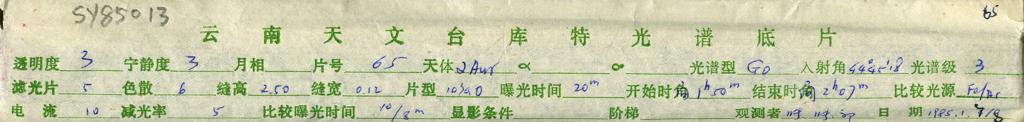 SY85013
65
云南天文台库特光谱底片
透明度 3 宁静度 3 月相 片号 65 天体 α Aur α 光谱型 G0 入射角 44°45′18 光谱级 3
滤光片 5 色散 6 缝高 2.50 缝宽 0.12 片型 103aD 曝光时间 20m 开始时角 1h50m 结束时角 2h07m 比较光源 Fe/Ar
电流 10 减光率 5 比较曝光时间 10/8m 显影条件 阶梯 观测者 日期 1985.1.7/8